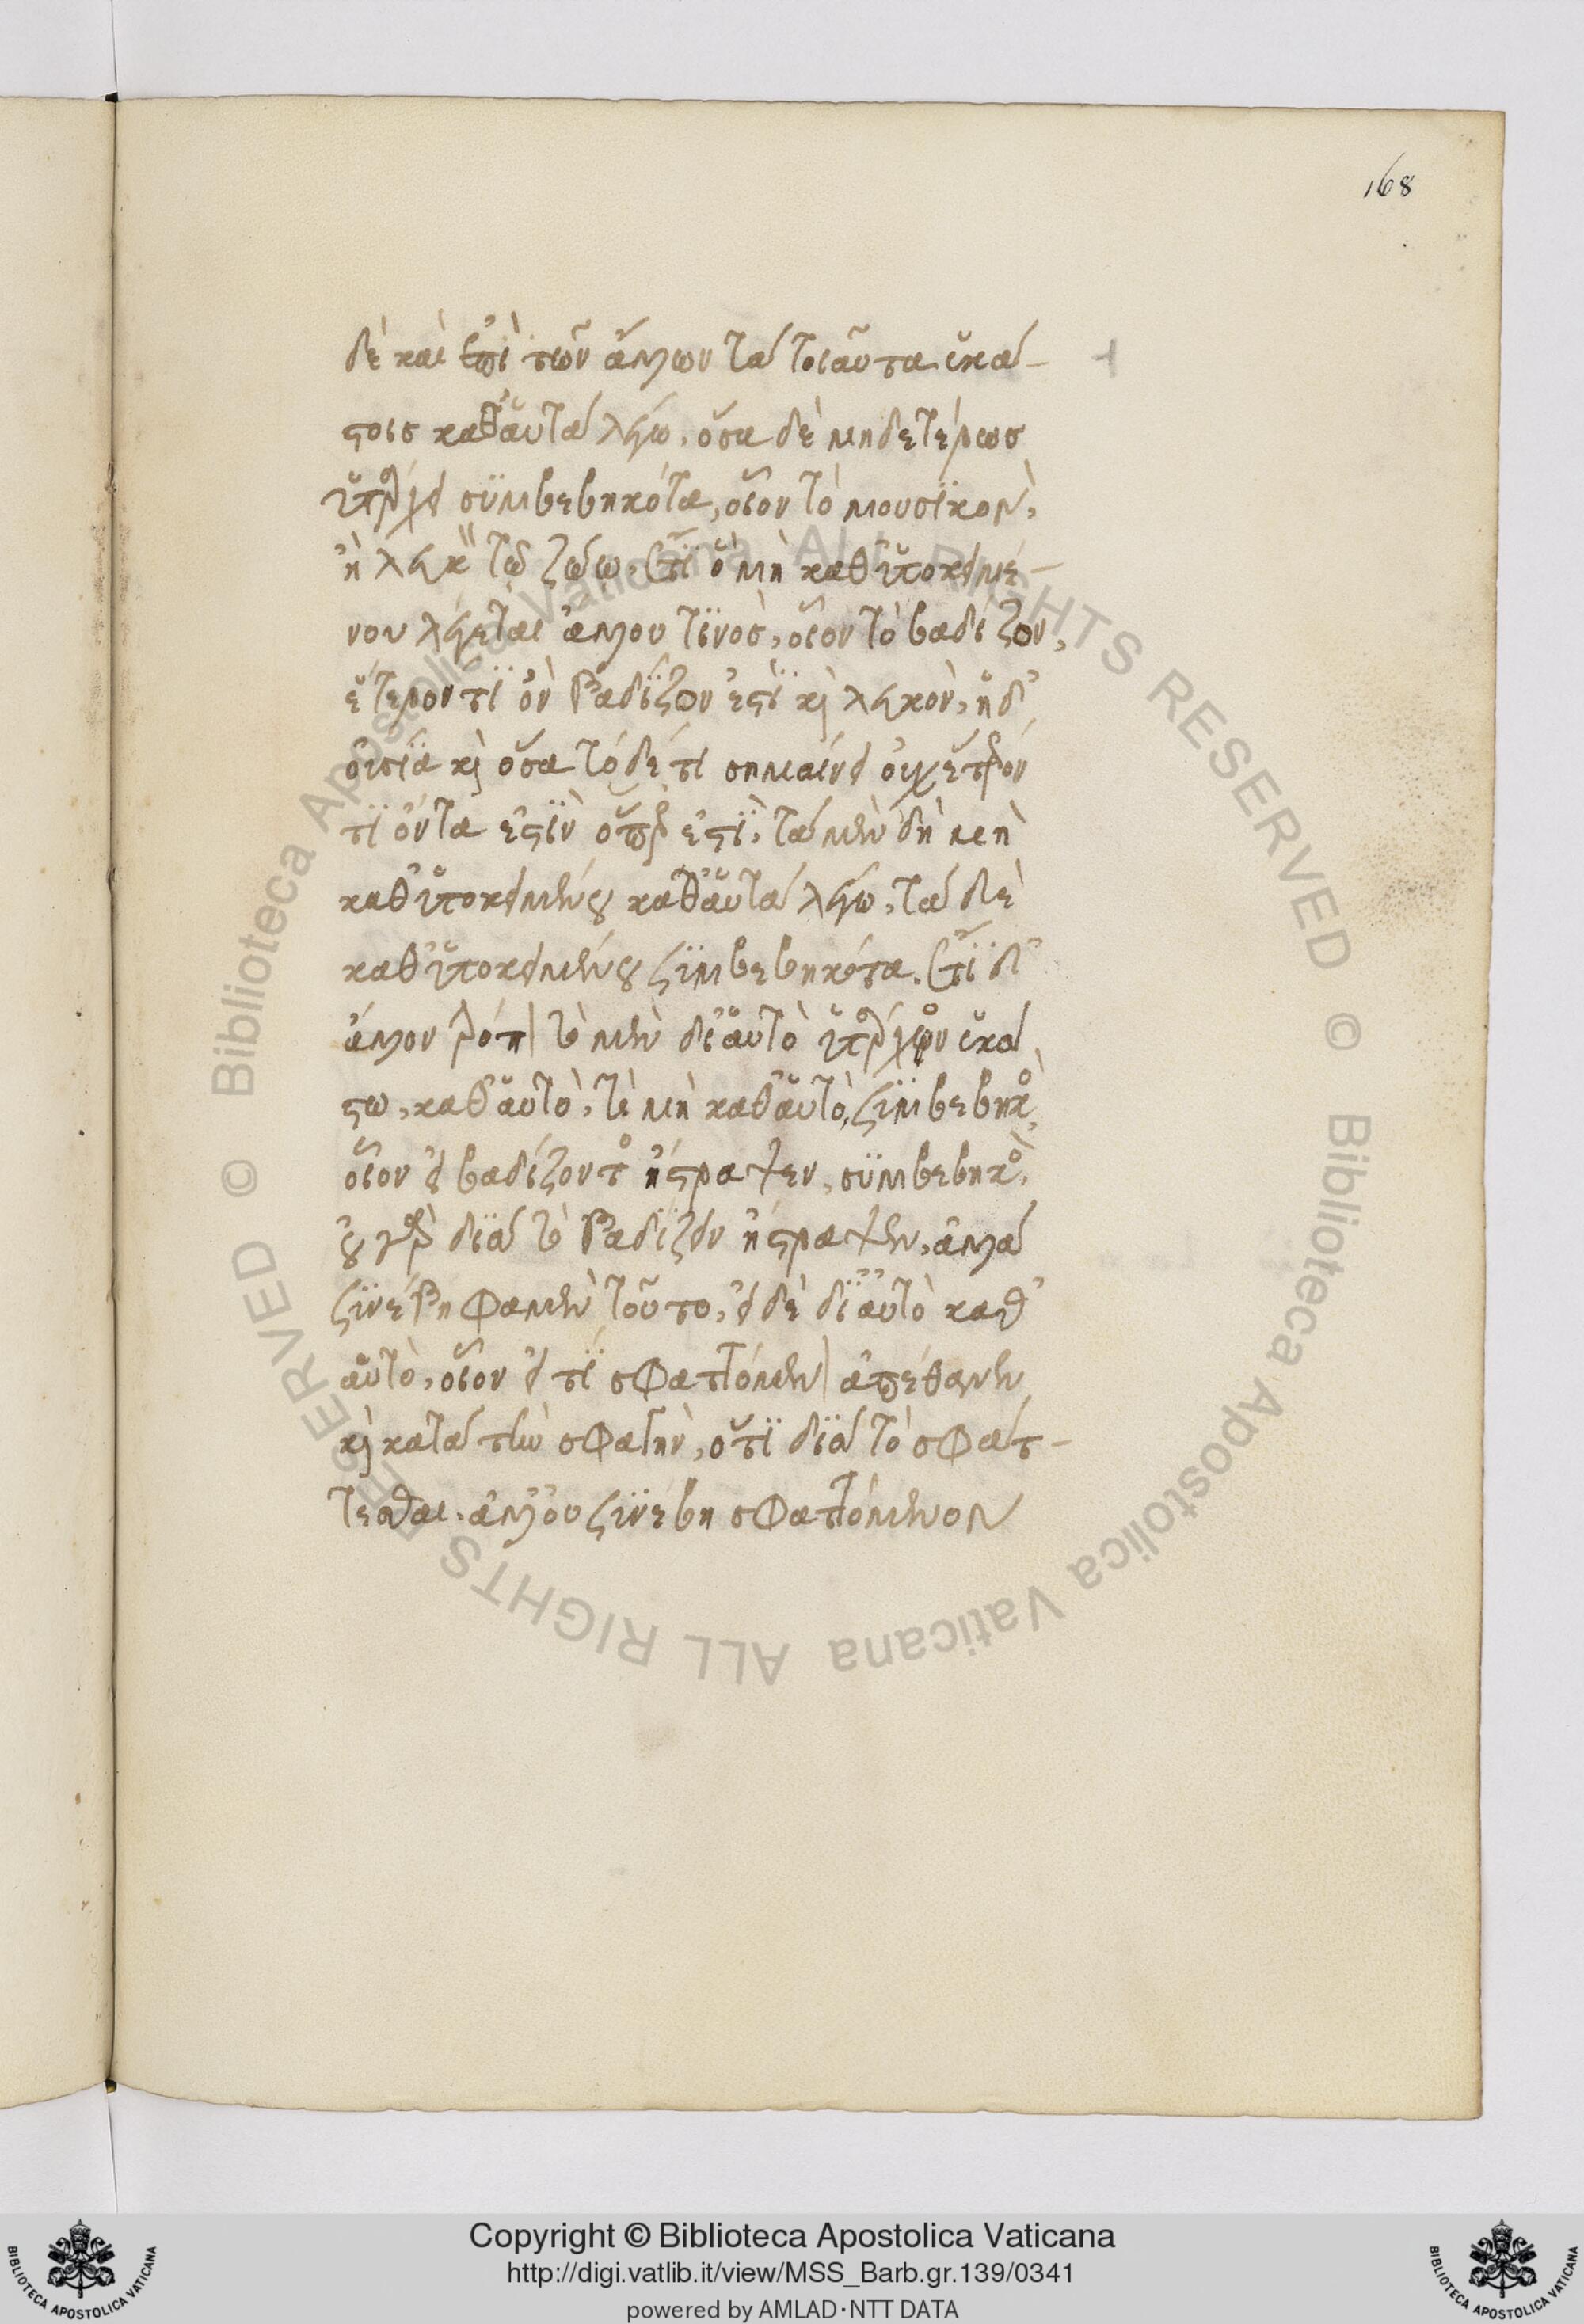 168
δὲ καὶ ἐπὶ τῶν ἄλλων τὰ τοιαῦτα ἑκά-
στοις καθ' αὑτὰ λέγω, ὅσα δὲ μηδετέρως
ὑπάρχει συμβεβηκότα, οἷον τὸ μουσικὸν,
ἢ λευκὸν τῷ ζώῳ. ἔτι ὃ μὴ καθ' ὑποκειμέ-
νου λέγεται ἄλλου τινὸς, οἷον τὸ βαδίζον,
ἕτερον τι ὂν βαδίζον ἐστὶ καὶ λευκὸν, ἡ δ'
οὐσία καὶ ὅσα τόδε τι σημαίνει οὐχ ἕτερόν
τι ὄντα ἐστὶν ὅπερ ἐστὶ, τὰ μὲν δὴ μὴ
καθ' ὑποκειμένου καθ' αὑτὰ λέγω, τὰ δὲ
καθ' ὑποκειμένου συμβεβηκότα. ἔτι δ'
ἄλλον τρόπον τὸ μὲν δι' αὑτὸ ὑπάρχον ἑκά
στω, καθ' αὑτὸ, τὸ μὴ καθ' αὑτὸ, συμβεβηκὸς,
οἷον εἰ βαδίζοντος ἤστραψεν, συμβεβηκὸς,
οὐ γὰρ διὰ τὸ βαδίζειν ἤστραψεν, ἀλλὰ
συνέβη φαμὲν τοῦτο, εἰ δὲ δι' αὑτὸ καθ'
αὑτὸ, οἷον εἴ τι σφαττόμενον ἀπέθανεν
καὶ κατὰ τὴν σφαγὴν, ὅτι διὰ τὸ σφάτ-
τεσθαι. ἀλλ' οὐ συνέβη σφαττόμενον
Copyright © Biblioteca Apostolica Vaticana
http://digi.vatlib.it/view/MSS_Barb.gr.139/0341
powered by AMLAD·NTT DATA